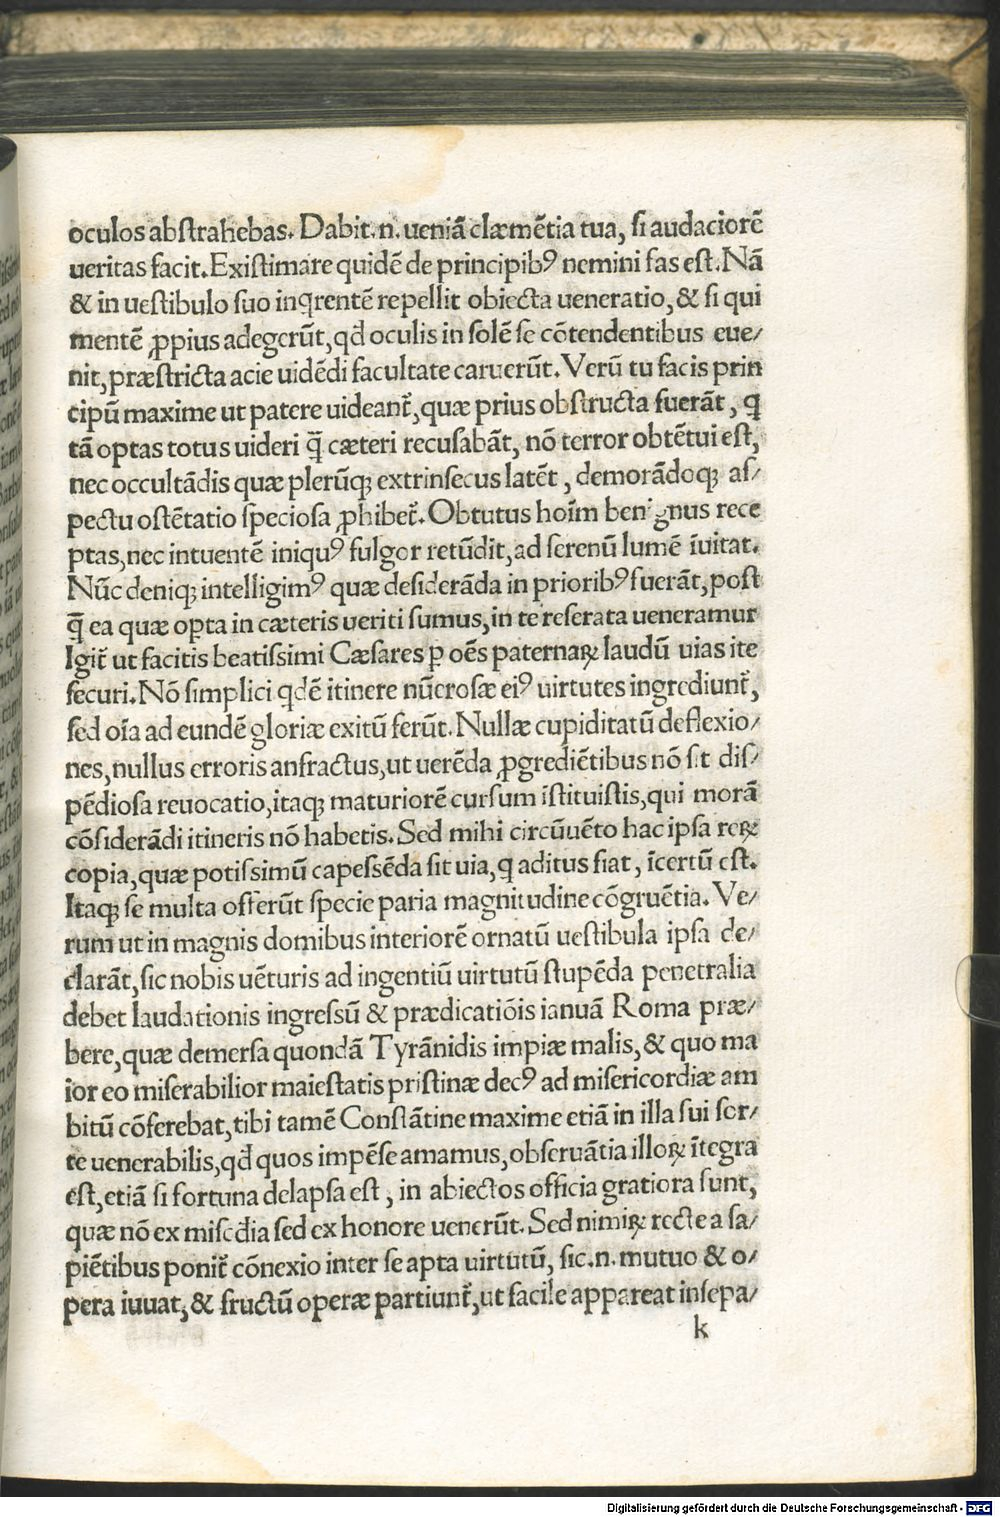 oculos abstrahebas. Dabit.n. ueniā clæmētia tua, si audaciorē
ueritas facit. Existimare quidē de principibꝰ nemini fas est. Nā
& in uestibulo suo inqrentē repellit obiecta ueneratio, & si qui
mentē ꝓpius adegerūt, qđ oculis in solē se cōtendentibus eue/
nit, præstricta acie uidēdi facultate caruerūt. Verū tu facis prin
cipū maxime ut patere uideant᷑, quæ prius obstructa fuerāt, q
tā optas totus uideri q̄ cæteri recusabāt, nō terror obtētui est,
nec occultādis quæ plerūqꝫ extrinsecus latēt, demorādoqꝫ as/
pectu ostētatio speciosa ꝓhibet᷑. Obtutus hoīm benignus rece
ptas, nec intuentē iniquꝰ fulgor retūdit, ad serenū lumē īuitat.
Nūc deniqꝫ intelligimꝰ quæ desiderāda in prioribꝰ fuerāt, post
q̄ ea quæ opta in cæteris ueriti sumus, in te reserata ueneramur
Igit᷑ ut facitis beatissimi Cæsares p oēs paternaꝝ laudū uias ite
securi. Nō simplici qdē itinere nūerosæ eiꝰ uirtutes ingrediunt᷑,
sed oīa ad eundē gloriæ exitū ferūt. Nullæ cupiditatū deflexio/
nes, nullus erroris anfractus, ut uerēda ꝓgrediētibus nō sit dis/
pēdiosa reuocatio, itaqꝫ maturiorē cursum īstituistis, qui morā
cōsiderādi itineris nō habetis. Sed mihi circūuēto hac ipsa reꝝ
copia, quæ potissimū capessēda sit uia, q aditus fiat, īcertū est.
Itaqꝫ se multa offerūt specie paria magnitudine cōgruētia. Ve/
rum ut in magnis domibus interiorē ornatū uestibula ipsa de/
clarāt, sic nobis uēturis ad ingentiū uirtutū stupēda penetralia
debet laudationis ingressū & prædicatiōis ianuā Roma præ/
bere, quæ demersa quondā Tyrānidis impiæ malis, & quo ma
ior eo miserabilior maiestatis pristinæ decꝰ ad misericordiæ am
bitū cōferebat, tibi tamē Constātine maxime etiā in illa sui sor/
te uenerabilis, qđ quos impēse amamus, obseruātia illoꝝ ītegra
est, etiā si fortuna delapsa est, in abiectos officia gratiora sunt,
quæ nō ex mis̄c̄dia sed ex honore uenerūt. Sed nimiꝝ recte a sa/
piētibus ponit᷑ cōnexio inter se apta uirtutū, sic.n. mutuo & o/
pera iuuat, & fructū operæ partiunt᷑, ut facile appareat insepa/
k
Digitalisierung gefördert durch die Deutsche Forschungsgemeinschaft - DFG